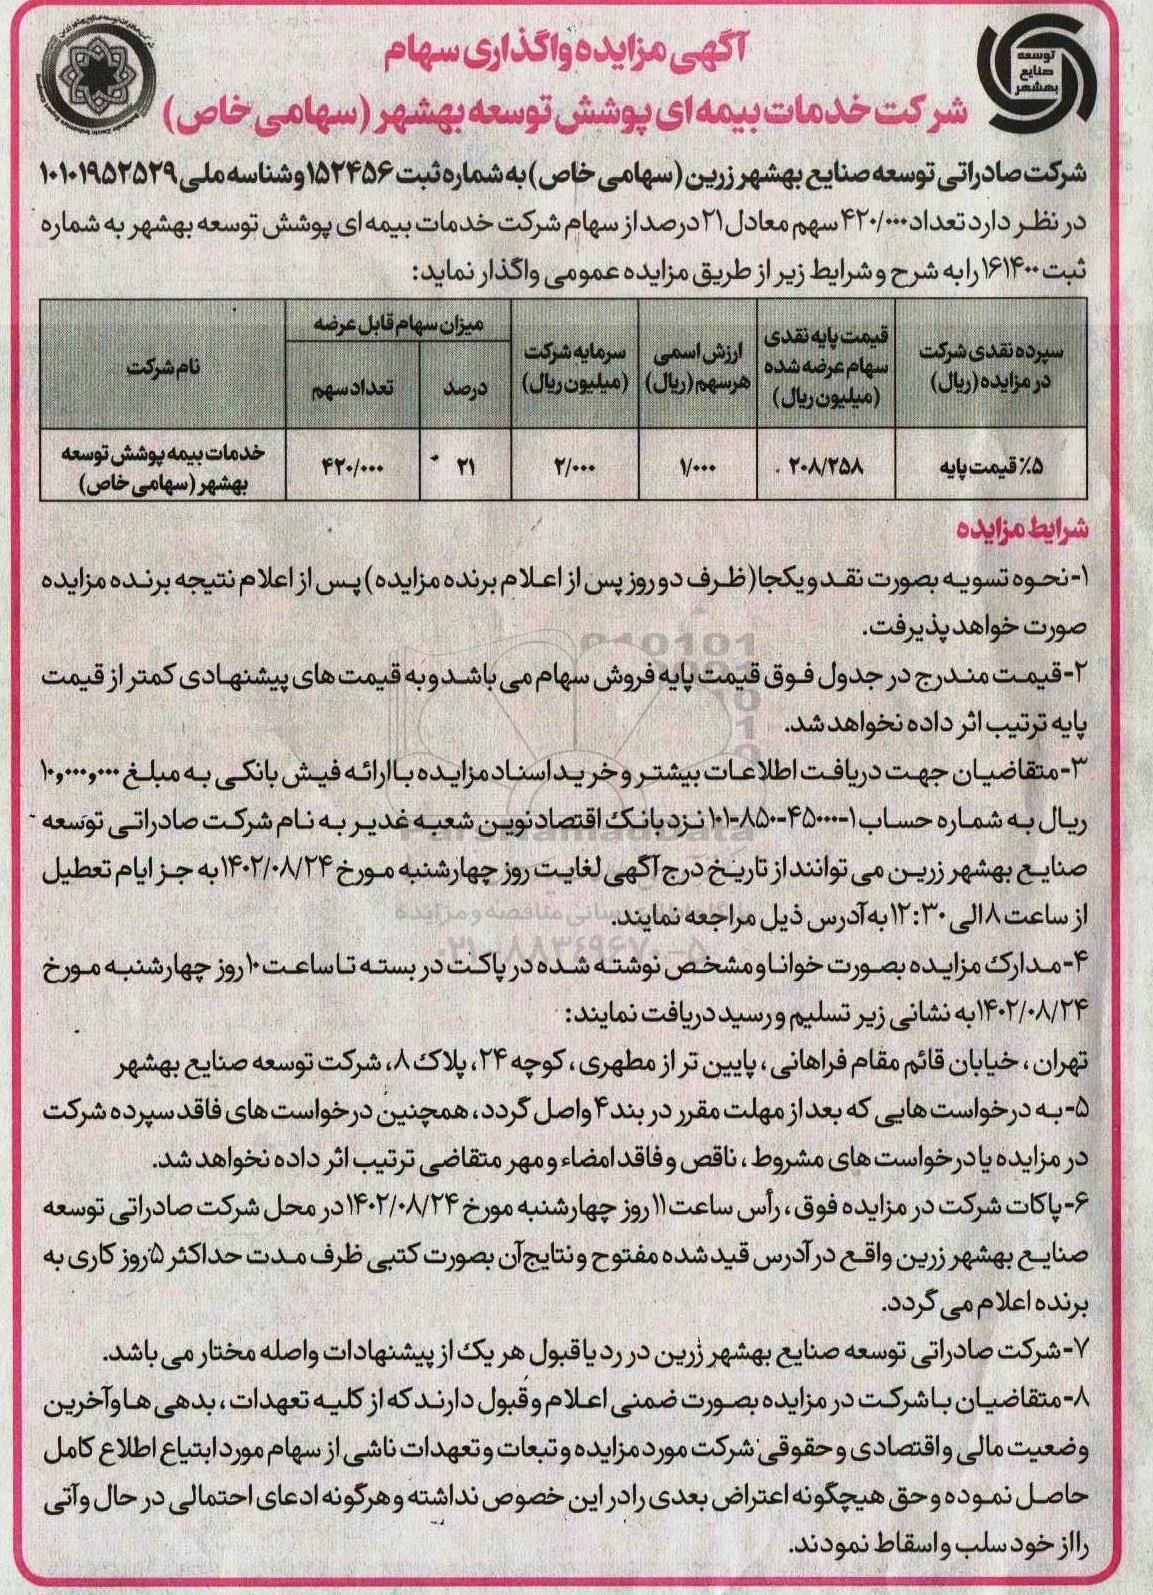 توسعه
صنایع
بهشهر
آگهی مزایده واگذاری سهام
شرکت خدمات بیمه ای پوشش توسعه بهشهر (سهامی خاص)
شرکت صادراتی توسعه صنایع بهشهر زرین (سهامی خاص) به شماره ثبت ۱۵۲۴۵۶ و شناسه ملی ۱۰۱۰۱۹۵۲۵۲۹
در نظر دارد تعداد ۴۲۰/۰۰۰ سهم معادل ۲۱ درصد از سهام شرکت خدمات بیمه ای پوشش توسعه بهشهر به شماره
ثبت ۱۶۱۴۰۰ را به شرح و شرایط زیر از طریق مزایده عمومی واگذار نماید:
سپرده نقدی شرکت
در مزایده (ریال)
قیمت پایه نقدی
سهام عرضه شده
(میلیون ریال)
ارزش اسمی
هر سهم (ریال)
سرمایه شرکت
(میلیون ریال)
میزان سهام قابل عرضه
درصد
تعداد سهم
نام شرکت
۵٪ قیمت پایه
۲۰۸/۲۵۸
۱/۰۰۰
۲/۰۰۰
۲۱
۴۲۰/۰۰۰
خدمات بیمه پوشش توسعه
بهشهر (سهامی خاص)
شرایط مزایده
۱-نحوه تسویه بصورت نقد و یکجا (ظرف دو روز پس از اعلام برنده مزایده) پس از اعلام نتیجه برنده مزایده
صورت خواهد پذیرفت.
۲-قیمت مندرج در جدول فوق قیمت پایه فروش سهام می باشد و به قیمت های پیشنهادی کمتر از قیمت
پایه ترتیب اثر داده نخواهد شد.
۳-متقاضیان جهت دریافت اطلاعات بیشتر و خرید اسناد مزایده با ارائه فیش بانکی به مبلغ ۱۰,۰۰۰,۰۰۰
ریال به شماره حساب ۱-۴۵۰۰۰-۸۵۰-۱۰۱ نزد بانک اقتصاد نوین شعبه غدیر به نام شرکت صادراتی توسعه
صنایع بهشهر زرین می توانند از تاریخ درج آگهی لغایت روز چهارشنبه مورخ ۱۴۰۲/۰۸/۲۴ به جز ایام تعطیل
از ساعت ۸ الی ۱۲:۳۰ به آدرس ذیل مراجعه نمایند.
۴-مدارک مزایده بصورت خوانا و مشخص نوشته شده در پاکت در بسته تا ساعت ۱۰ روز چهارشنبه مورخ
۱۴۰۲/۰۸/۲۴ به نشانی زیر تسلیم و رسید دریافت نمایند:
تهران، خیابان قائم مقام فراهانی، پایین تر از مطهری، کوچه ۲۴، پلاک ۸، شرکت توسعه صنایع بهشهر
۵-به درخواست هایی که بعد از مهلت مقرر در بند ۴ واصل گردد، همچنین درخواست های فاقد سپرده شرکت
در مزایده یا درخواست های مشروط، ناقص و فاقد امضاء و مهر متقاضی ترتیب اثر داده نخواهد شد.
۶-پاکات شرکت در مزایده فوق، رأس ساعت ۱۱ روز چهارشنبه مورخ ۱۴۰۲/۰۸/۲۴ در محل شرکت صادراتی توسعه
صنایع بهشهر زرین واقع در آدرس قید شده مفتوح و نتایج آن بصورت کتبی ظرف مدت حداکثر ۵ روز کاری به
برنده اعلام می گردد.
۷-شرکت صادراتی توسعه صنایع بهشهر زرین در رد یا قبول هر یک از پیشنهادات واصله مختار می باشد.
۸-متقاضیان با شرکت در مزایده بصورت ضمنی اعلام و قبول دارند که از کلیه تعهدات، بدهی ها و آخرین
وضعیت مالی و اقتصادی و حقوقی شرکت مورد مزایده و تبعات و تعهدات ناشی از سهام مورد ابتیاع اطلاع کامل
حاصل نموده و حق هیچگونه اعتراض بعدی را در این خصوص نداشته و هرگونه ادعای احتمالی در حال و آتی
را از خود سلب و اسقاط نمودند.